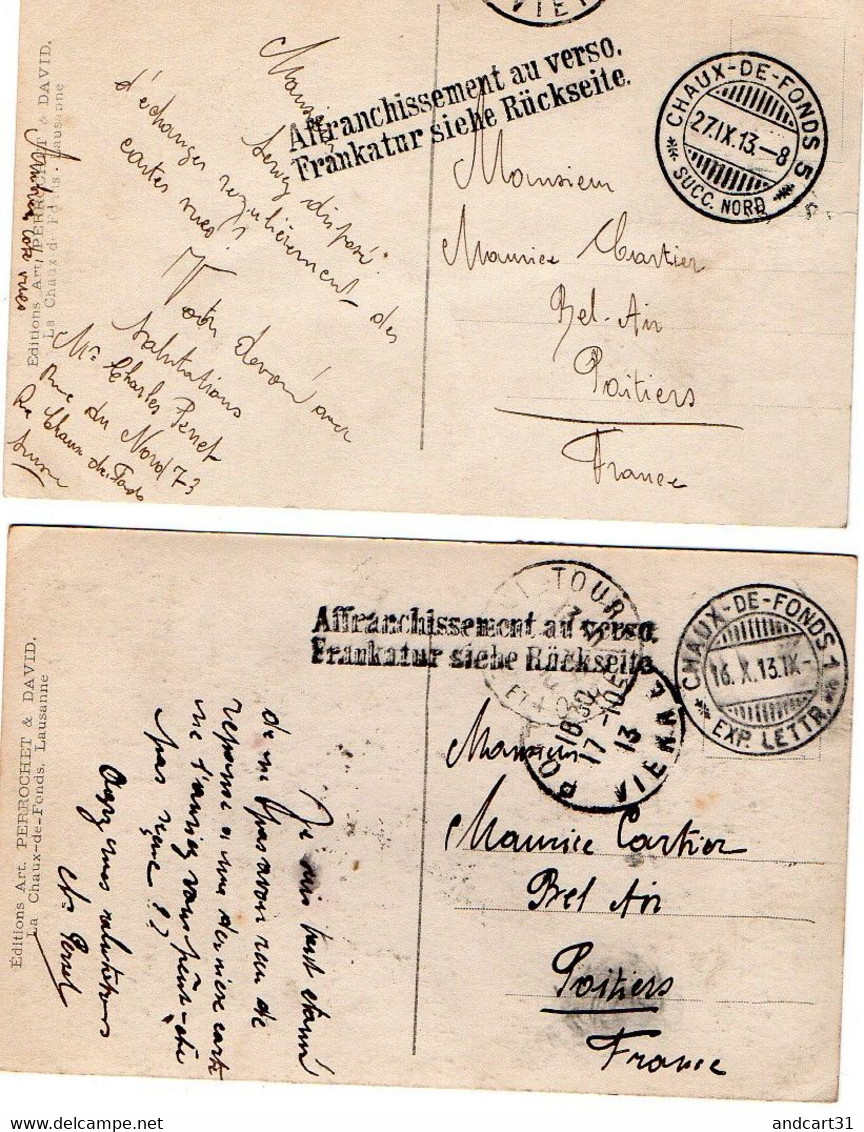 VIE
Affranchissement au verso.
Frankatur siehe Rückseite.
CHAUX-DE-FONDS 5
27.IX.13.-8
SUCC. NORD
Editions Art. PERROCHET & DAVID.
La Chaux-de-Fonds. Lausanne
Monsieur
Seriez disposé
d'échanger regulièrement des
cartes vues?
Votre devoué avec
salutations
Mr Charles Perret
rue du Nord 73
La Chaux de Fonds
Suisse
Monsieur
Maurice Cartier
Bel-Air
Poitiers
France
Affranchissement au verso.
Frankatur siehe Rückseite.
TOUR
18 30
17-10
13
VIENNE
CHAUX-DE-FONDS 1
16.X.13.IX-
EXP. LETTR.
Éditions Art. PERROCHET & DAVID.
La Chaux-de-Fonds. Lausanne
Je suis tout etonné
de ne pas avoir reçu de
reponse a ma derniere carte
ne l'auriez vous peut-être
pas reçue??
mes salutations
Chs Perret
Monsieur
Maurice Cartier
Bel Air
Poitiers
France
andcart31